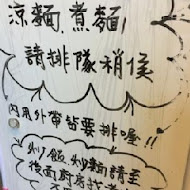 涼麵.煮麵
請排隊稍候
內用外帶皆要排喔!!
炒飯炒麵請至
後面廚房